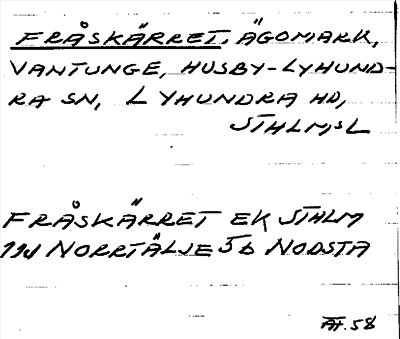 FRÅSKÄRRET, ÄGOMARK,
VANTUNGE, HUSBY-LYHUND-
RA SN, LYHUNDRA HD,
STHLM,S L
FRÅSKÄRRET EK STHLM
11d NORRTÄLJE 5b NODSTA
ÅF. 58